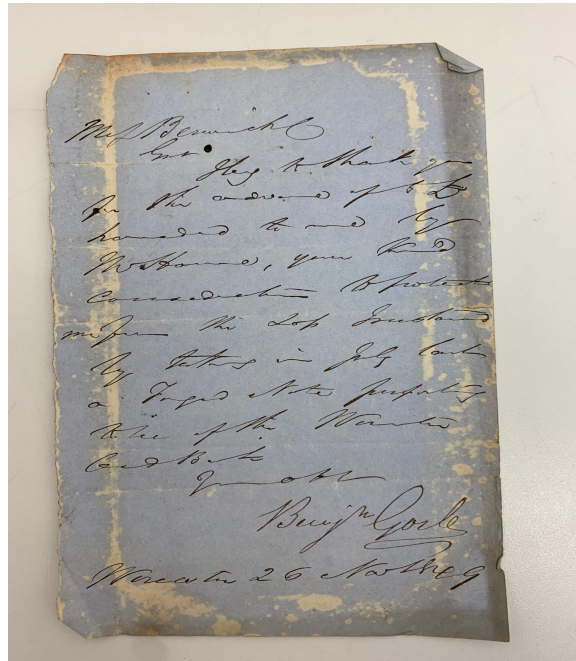 Messrs Berwick & Co
Gent I beg to thank you
for the award of £5
handed to me by
Mr Howard, your kind
consideration to protect
me from the loss sustained
by taking in July last
a Forged Note purporting
to be of the Worcester
Old Bank
Yours obt
Benjn Gosle
Worcester 26 Nov 1849